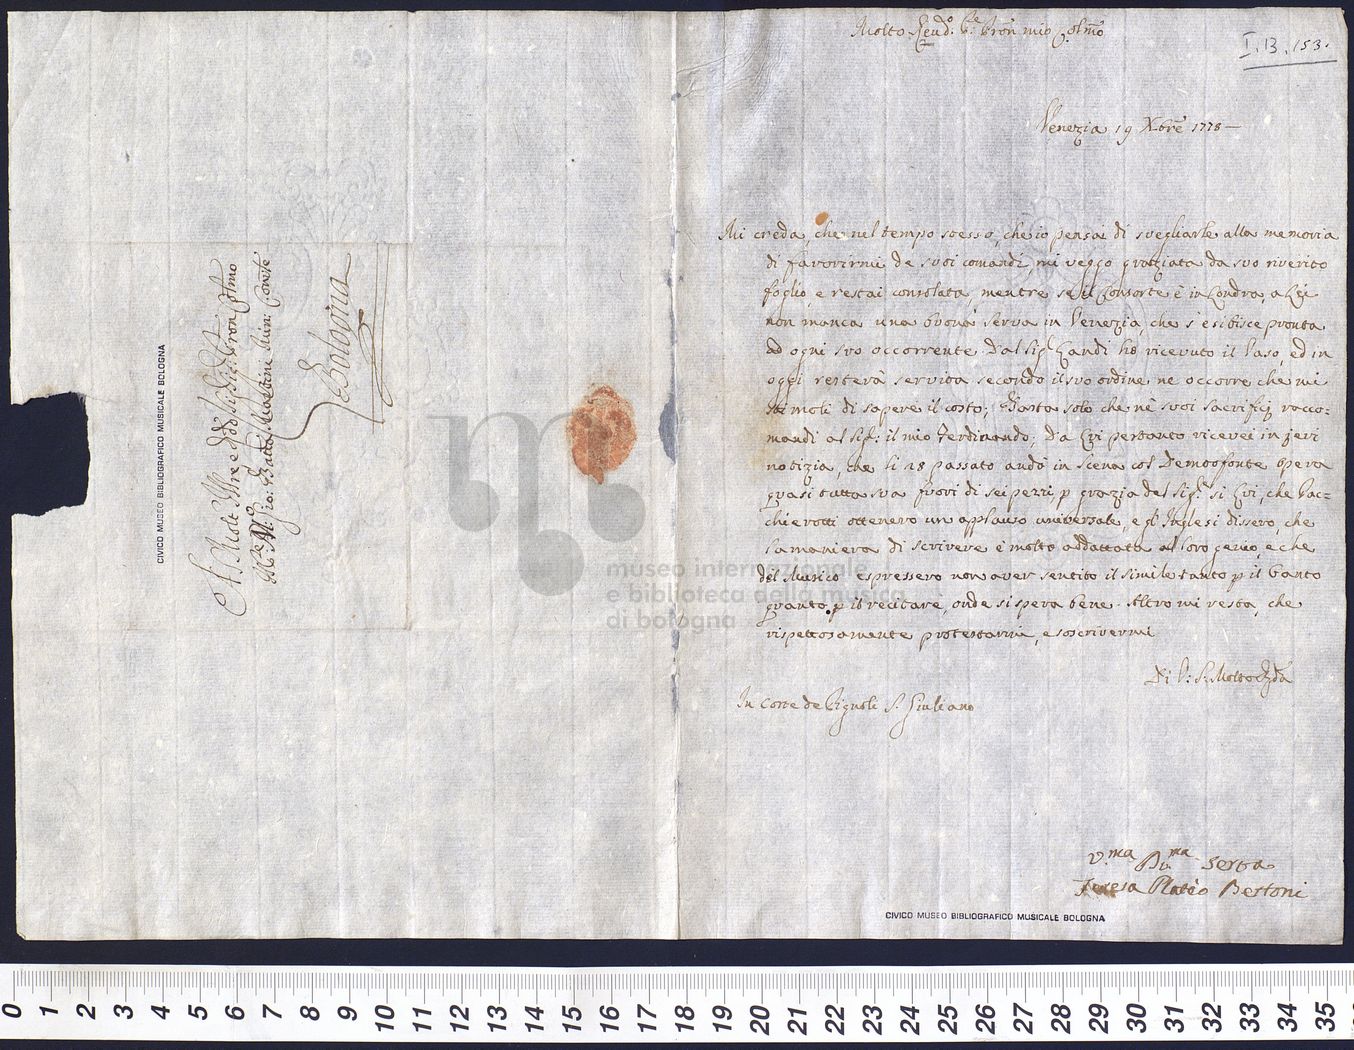 Molto Revdo: Pre Pron mio Colmo
I. B. 153.
Venezia 19 Xbre 1778 —
Mi creda, che nel tempo stesso, che io pensai di svegliarle alla memoria
di favorirmi de suoi comandi, mi veggo graziata da suo riverito
foglio, e restai consolata, mentre se il Consorte è in Londra, a Lei
non manca una buona serva in Venezia, che s'esibisce pronta
ad ogni suo occorrente. Dal Sigr Zandi ho ricevuto il Vaso, ed in
oggi resterà servita secondo il suo ordine, ne occorre che mi
stimoli di sapere il costo; Basta solo che ne suoi sacrifizj racco=
mandi al Sigr: il mio Ferdinando; Da Lui pertanto ricevei in jeri
notizia, che li 28 passato andò in scena col Demoofonte opera
quasi tutta sua fuori di sei pezzi, p grazia del Sigr si Lui, che Pac=
chierotti ottenero un applauso universale, e gl'Inglesi dissero, che
la maniera di scrivere è molto addattata al loro genio, e che
del Musico espressero non aver sentito il simile tanto p il Canto
quanto p il recitare, onde si spera bene. Altro mi resta, che
rispettosamente protestarmi, e soscrivermi
Di V: S: Molto Rda
In Corte de Zignoli S. Giuliano
Vma Dma Serva
Teresa Bertoni
CIVICO MUSEO BIBLIOGRAFICO MUSICALE BOLOGNA
Al Molt Illre e Rdo Sigr Sigr Pron Colmo
Gio: Batta Martini Min: Convle
Bologna
CIVICO MUSEO BIBLIOGRAFICO MUSICALE BOLOGNA
museo internazionale
e biblioteca della musica
di bologna
0 1 2 3 4 5 6 7 8 9 10 11 12 13 14 15 16 17 18 19 20 21 22 23 24 25 26 27 28 29 30 31 32 33 34 35